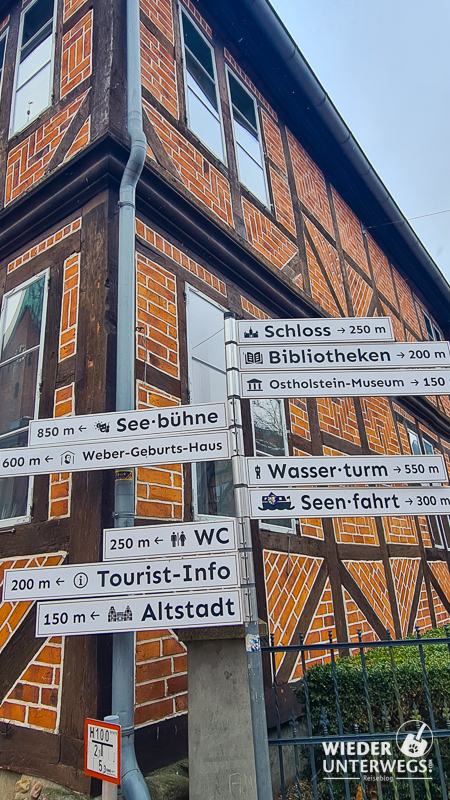 Schloss → 250 m
Bibliotheken → 200 m
Ostholstein-Museum → 150
850 m ← See·bühne
600 m ← Weber-Geburts-Haus
Wasser·turm → 550 m
Seen·fahrt → 300 m
250 m ← WC
200 m ← i Tourist-Info
150 m ← Altstadt
H100
2,1
5,
WIEDER
UNTERWEGS.com
Reiseblog